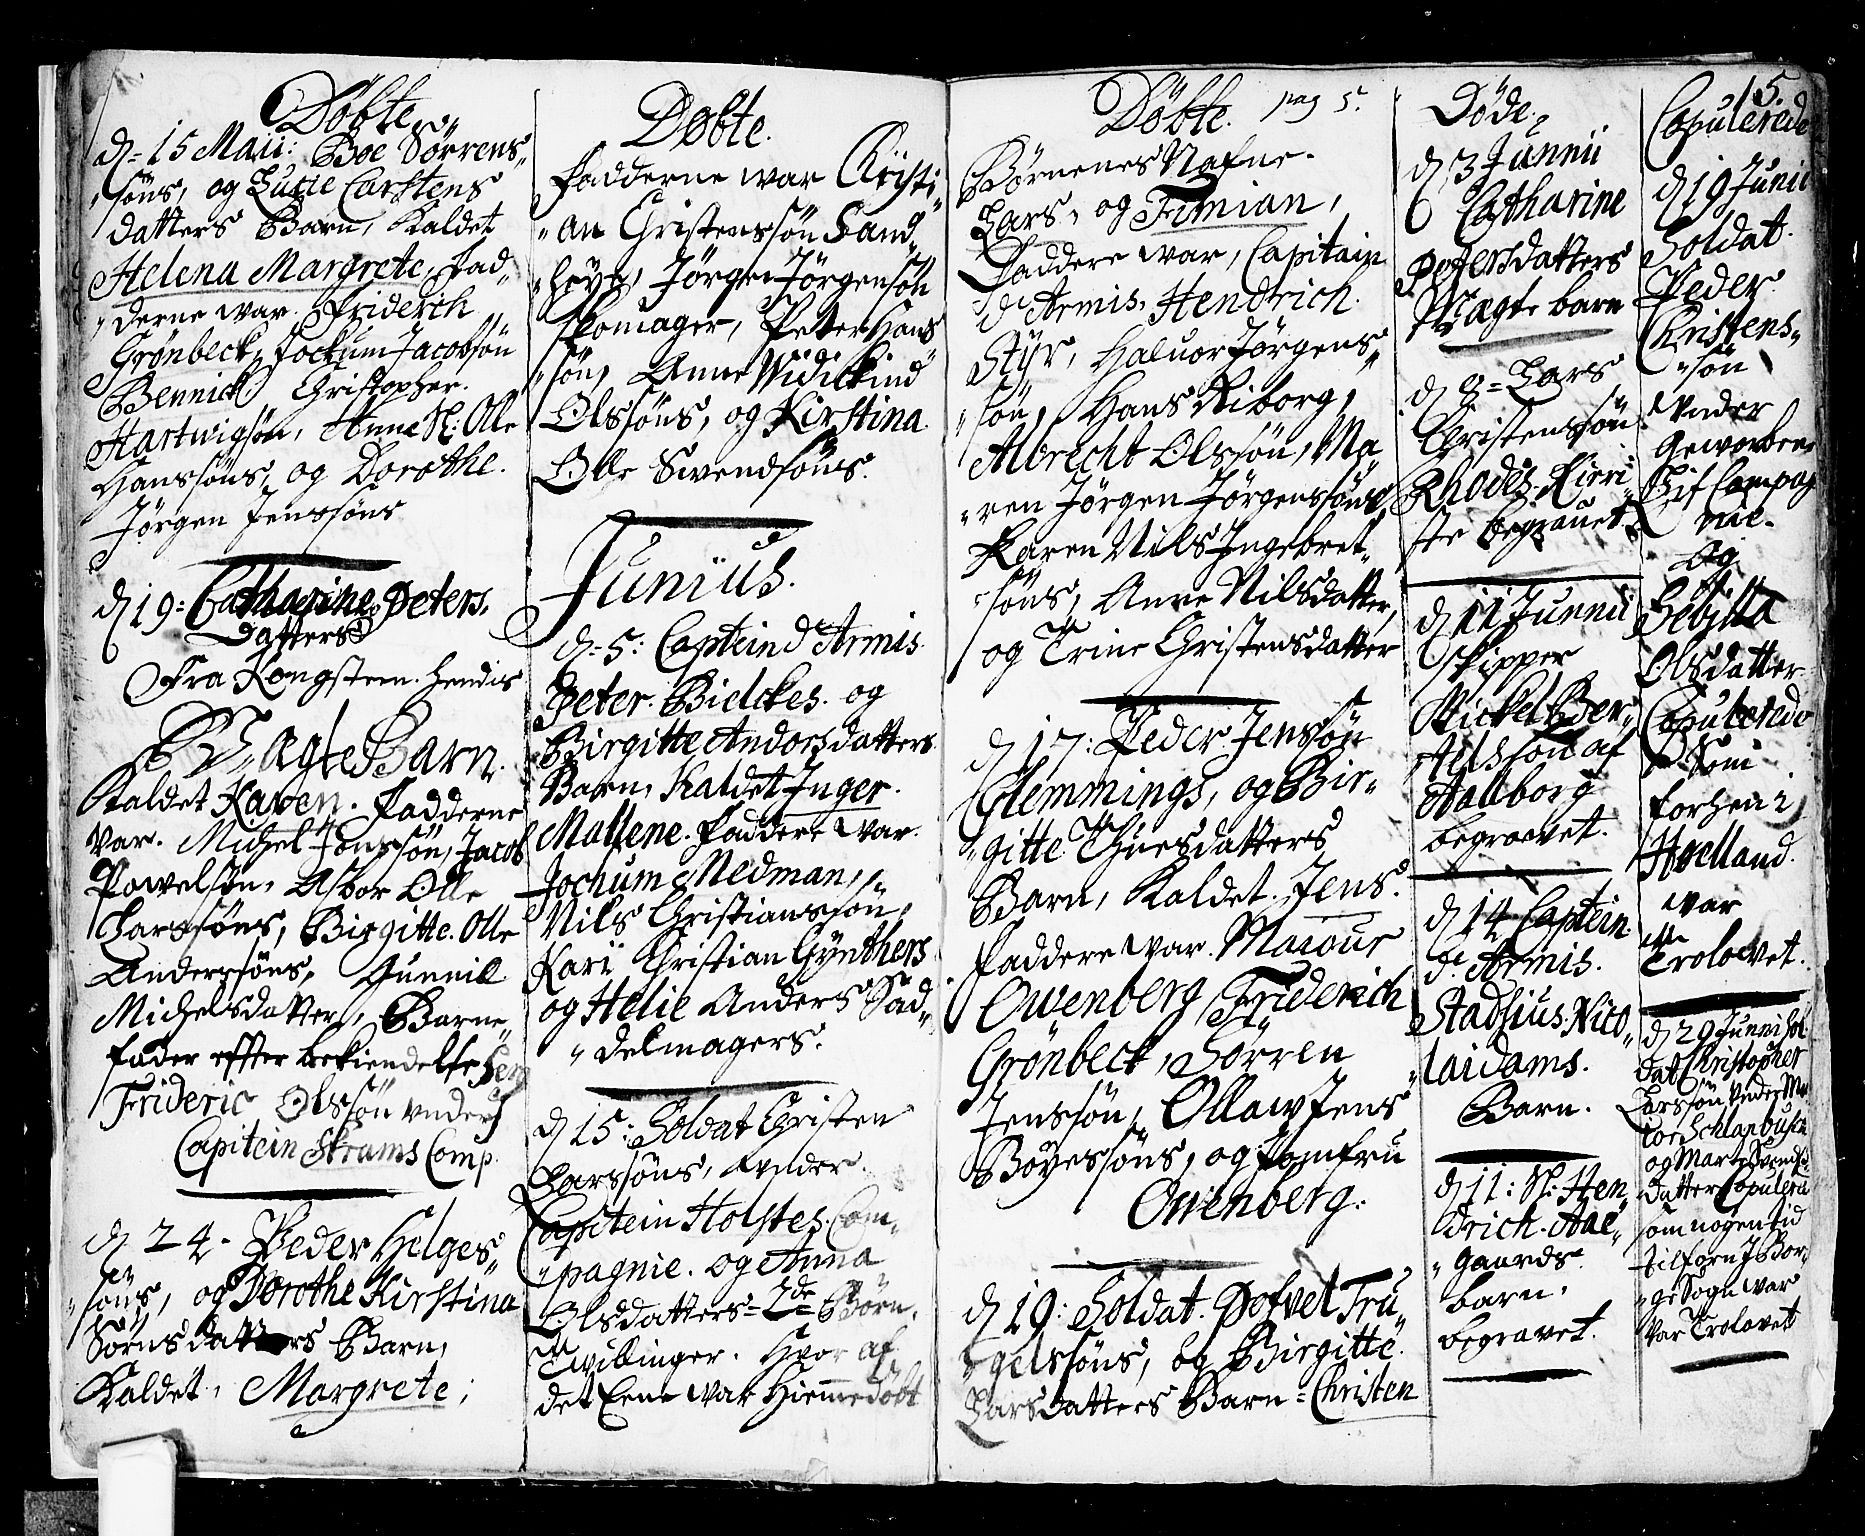 Døbte
d. 15 Maii: Boe Sørrens-
søns, og Lucie Carstens
datters Barn, Kaldet
Helena Margrete, Fad-
derne war. Friderich
Grønbeck, Jockum Jacobsøn
Bennick, Christopher.
Hartwigsøn, Anne Sl: Olle
Hanssøns, og Dorothe.
Jørgen Jenssøns
d 19: Catharine Peters-
Datters
Fra Kongsteen. hendis
Uægte Barn
Kaldet Karen. Fadderne
var. Michel Jonssøn, Jacob
Powelsen, Asbor Olle
Larssøns, Birgitte. Olle
Anderssøns, Gunnill
Michelsdatter, Barne-
fader effter bekiendelse
Frideric Olssøn vnder
Capitein Skrams Comp.
d 24. Peder Helges-
søns, og Dorothe Kirstina
Sørnsdatters Barn,
Kaldet, Margrete;
Døbte.
Fadderne war Christi-
an Christenssøn Sand-
Jørgen Jørgensøn
skomager, Peter Hans
søn, Anne Widickind
Olssøns, og Kirstina
Olle Swendsøns.
Junius.
d. 5: Captein d'Armis.
Peter. Bielckes. og
Birgitte Andorsdatters
Barn, Kaldet Inger.
Mallene. Faddere war.
Jochum Nedman,
Nils Christianssøn,
Kari Christian Gynthers
og Helie Anders Sad-
delmagers.
d 15: Soldat Christen
Larssøns, vnder.
Capitein Holstes. Com-
pagnie. og Anna
Olsdatters 2de Børn.
Twillinger. Hvor af
det Eene war Hiemmedøbt
Døbte. pag 5.
Børnenes Nafne.
Lars, og Timian,
Faddere war, Capitain
d'Armis, Hendrich.
Styr, Haluor Jørgens-
søn, Hans Riborg,
Albrecht Olssøn, Ma-
ren Jørgen Jørgenssøns,
Karen Nils Ingebret-
søns, Anne Nilsdatter,
og Trine Christensdatter
d 17: Peder Jenssøn
Clemmings, og Bir-
gitte Thuesdatters
Barn, Kaldet. Jens.
Faddere war. Maiour
Owenberg, Friderich
Grønbeck, Sørren
Jenssøn, Ollaw Jens
Boyessøns, og Jomfru
Owenberg.
d 19: Soldat. Pofvel Tru-
gelssøns, og Birgitte.
Larsdatters Barn = Christen
Døde.
d 3 Junii
Catharine
Petersdatters
Uægte barn
d 8 = Lars
Christenssøn
Rhodes. Kirri
ste begrauet.
d 11 Junii
skipper
Mickel Ber-
telssøn af
Aalborg
begraevet.
d 14 Captein.
d'Armis.
Stadsius. Nico-
laidams.
Barn.
d 11: Sl: Hen-
drich. Aae-
gaards.
barn.
begravet.
5.
Copulerede
d 19 Junii
Soldat.
Peder
Christens-
søn
vnder
Gevorbene
Lif Compag
nie.
Og
Sebilla
Olsdatter
Copulerede
Som
forhen i
Hoelland.
war
Trolovet.
d 29 Junii Sol
dat Christopher
Larssøn vnder Ma
ior Schlanbusch
og Marte Svends
datter Copulera
som nogen tid
tilforn J Bor-
ge Sogn war
var Trolovet